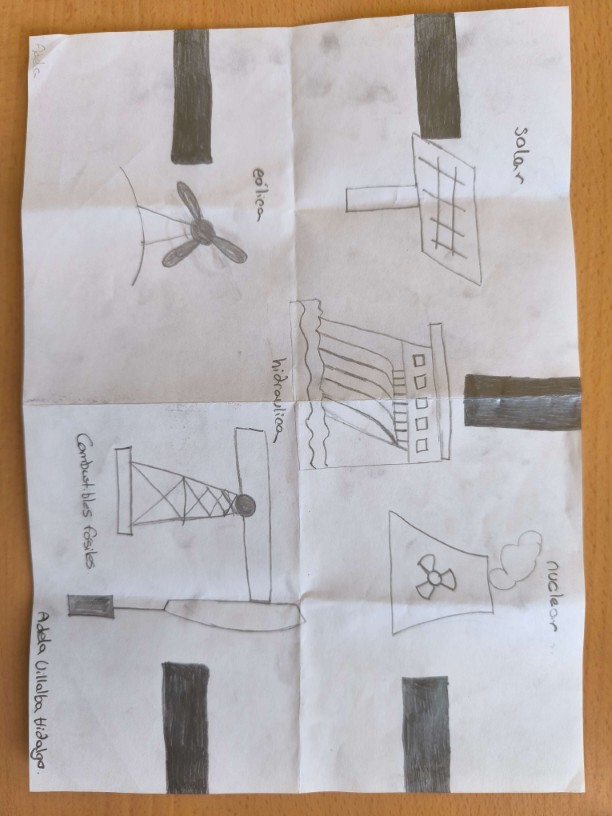 solar
nuclear
hidraulica
eólica
Combustibles fósiles
Adela
Adela Villalba Hidalgo.